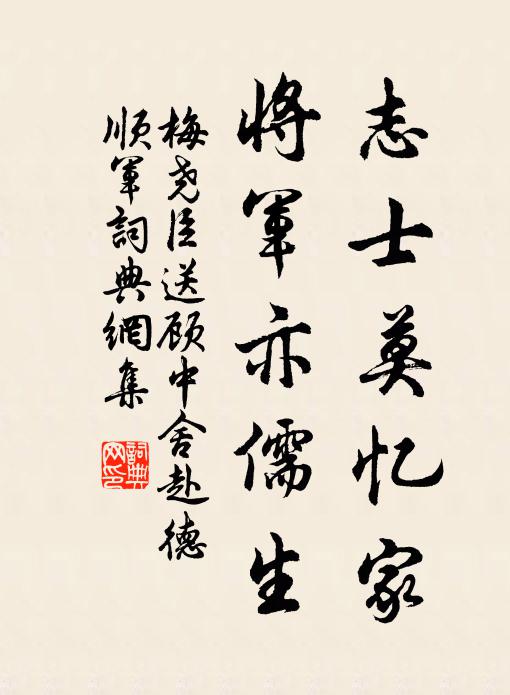 志士莫忆家
将军亦儒生
梅尧臣送顾中舍赴德
顺军词典网集
词典
网印